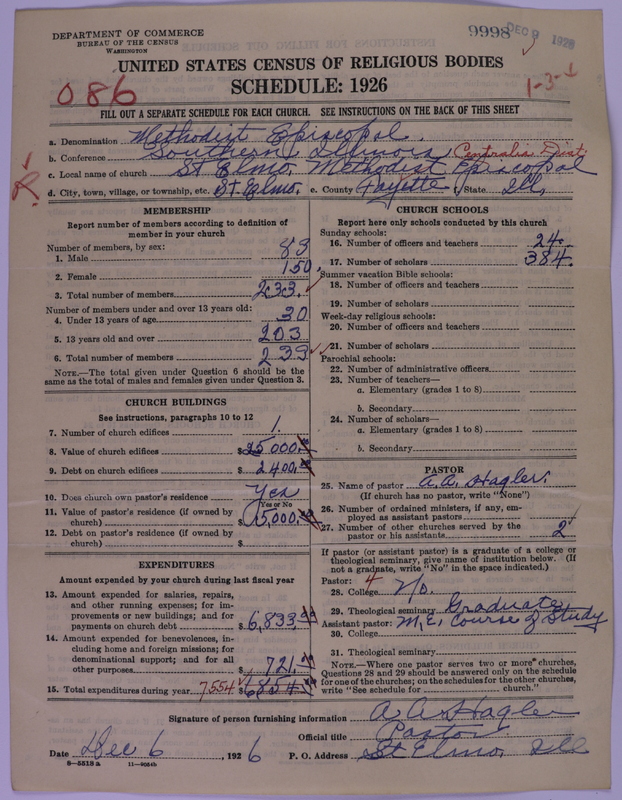 DEPARTMENT OF COMMERCE
BUREAU OF THE CENSUS
WASHINGTON
9998 DEC 9 1926
UNITED STATES CENSUS OF RELIGIOUS BODIES
SCHEDULE: 1926
086
1-3-1
FILL OUT A SEPARATE SCHEDULE FOR EACH CHURCH. SEE INSTRUCTIONS ON THE BACK OF THIS SHEET
a. Denomination Methodist Episcopal
b. Conference Southern Illinois Centralia Dist.
c. Local name of church St Elmo Methodist Episcopal
d. City, town, village, or township, etc. St Elmo. e. County Fayette f. State Ill.
MEMBERSHIP
Report number of members according to definition of
member in your church
Number of members, by sex:
1. Male 83
2. Female 150
3. Total number of members 233.
Number of members under and over 13 years old:
4. Under 13 years of age 30
5. 13 years old and over 203
6. Total number of members 233
NOTE.—The total given under Question 6 should be
same as the total of males and females given under Question 3.
CHURCH BUILDINGS
See instructions, paragraphs 10 to 12
7. Number of church edifices 1.
8. Value of church edifices $25000.00
9. Debt on church edifices $2400.00
10. Does church own pastor's residence Yes
Yes or No
11. Value of pastor's residence (if owned by
church) $5,000.00
12. Debt on pastor's residence (if owned by
church) $
EXPENDITURES
Amount expended by your church during last fiscal year
13. Amount expended for salaries, repairs,
and other running expenses; for im-
provements or new buildings; and for
payments on church debt $6,833.00
14. Amount expended for benevolences, in-
cluding home and foreign missions; for
denominational support; and for all
other purposes $721.00
15. Total expenditures during year 7554 $6854.00
CHURCH SCHOOLS
Report here only schools conducted by this church
Sunday schools:
16. Number of officers and teachers 24.
17. Number of scholars 384.
Summer vacation Bible schools:
18. Number of officers and teachers
19. Number of scholars
Week-day religious schools:
20. Number of officers and teachers
21. Number of scholars
Parochial schools:
22. Number of administrative officers
23. Number of teachers—
a. Elementary (grades 1 to 8)
b. Secondary
24. Number of scholars—
a. Elementary (grades 1 to 8)
b. Secondary
PASTOR
25. Name of pastor A. A. Hagler.
(If church has no pastor, write "None")
26. Number of ordained ministers, if any, em-
ployed as assistant pastors
27. Number of other churches served by the
pastor or his assistants 2
If pastor (or assistant pastor) is a graduate of a college or
theological seminary, give name of institution below. (If
not a graduate, write "No" in the space indicated.)
Pastor: 4
28. College No.
29. Theological seminary Graduate
Assistant pastor: M.E. Course of Study
30. College
31. Theological seminary
NOTE.—Where one pastor serves two or more churches,
Questions 28 and 29 should be answered only on the schedule
for one of the churches; on the schedules for the other churches,
write "See schedule for church."
Signature of person furnishing information A A Hagler
Official title Pastor
Date Dec 6, 1926 P. O. Address St Elmo Ill
8—5518 a 11—9054b